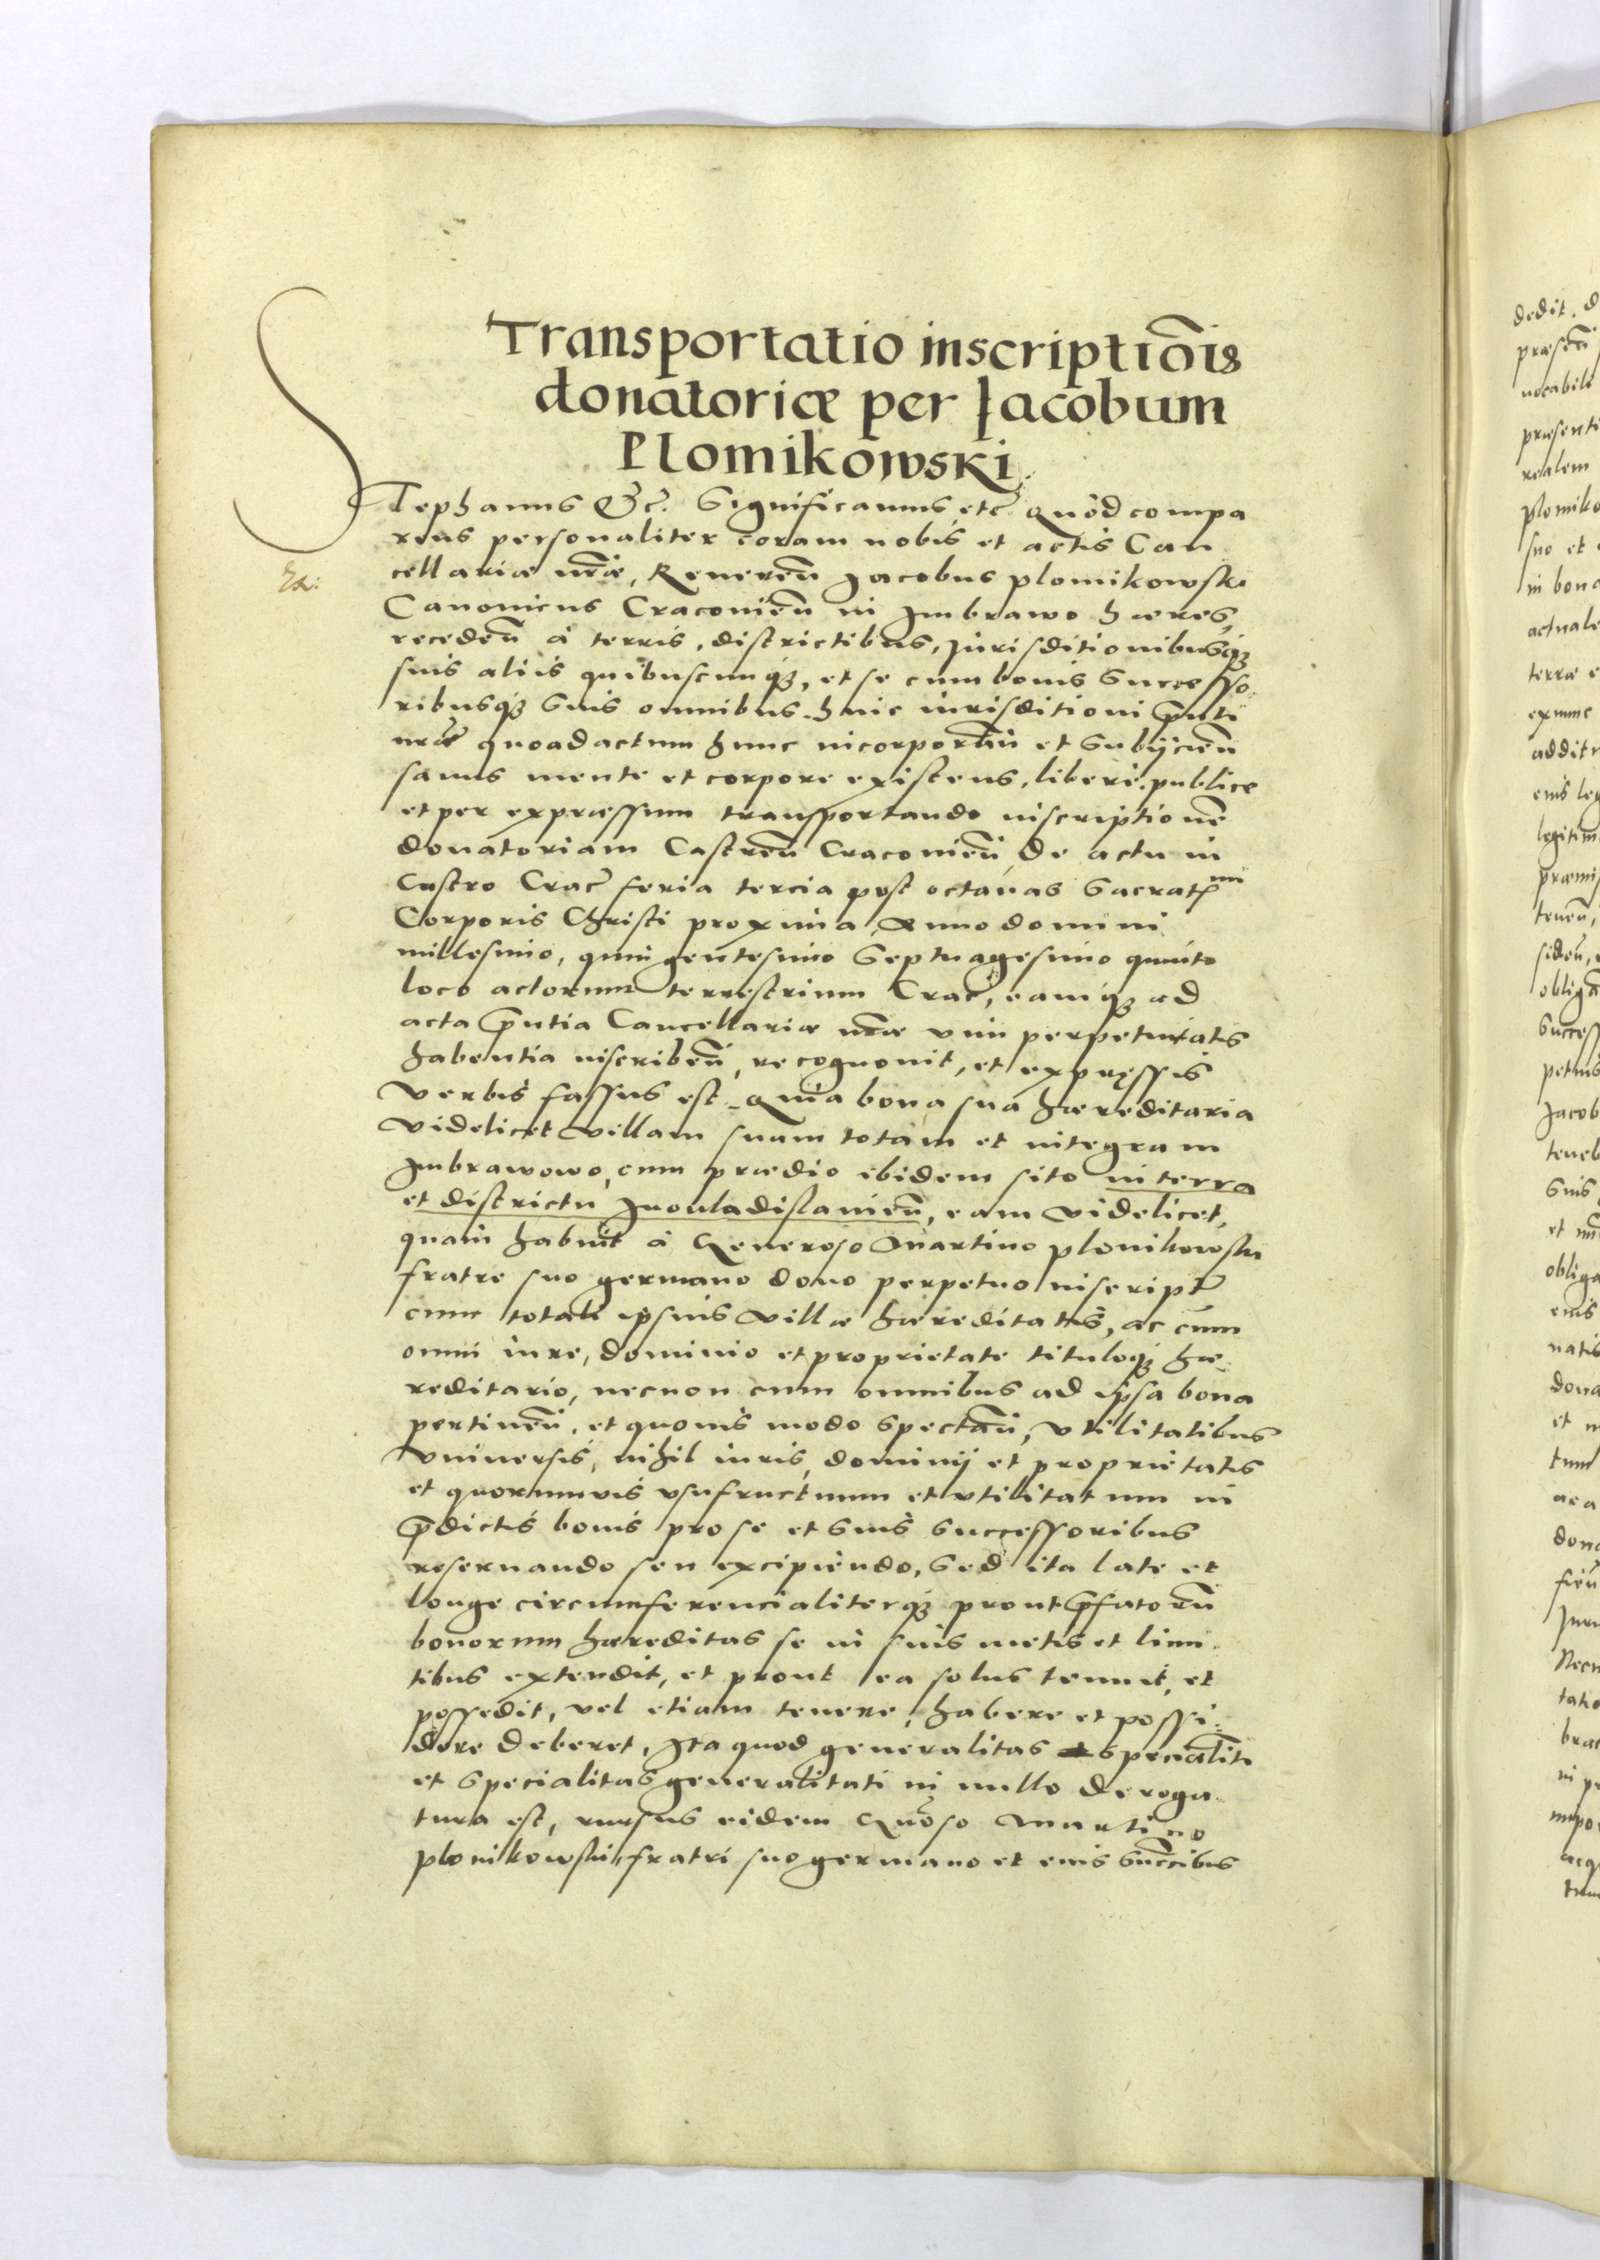 Transportatio inscriptiõis
donatoricæ per Jacobum
Plomikowski.
STephanus &c̃. Significamus etc̃ quòd compa
rens personaliter coram nobis et actis Can
cellariæ nr̃æ, Reueren̄ Jacobus plomikowski
Ex:
Canonicus Cracouien̄ in Jmbrawo hæres,
receden̄ à terris, districtibus, jurisditionibusq₃
suis aliis quibuscunq₃, et se cum bonis Successo
ribusq₃ Suis omnibus huic iurisditioni pr̃nti
nr̃æ quoad actum hunc incorporan̄ et Subijcien̄
sanus mente et corpore existens, liberè publice
et per expræssum transportando inscriptionẽ
donatoriam Castren̄ Cracouien̄ de actu in
Castro Crac̃ feria tercia post octauas Sacratmi
Corporis Christi proxima Anno domini
millesimo, quingentesimo Septuagesimo quinto
loco actorum terrestrium Crac̃, eamq₃ ad
acta pr̃ntia Cancellariæ nr̃æ vim perpetuitatis
habentia inscriben̄, recognouit, et expręssis
verbis fassus est. Quia bona sua hæreditaria
videlicet villam suam totam et integram
Jmbrawowo, cum prædio ibidem sito in terra
et districtu Juouladislauien̄, eam videlicet,
quam habuit à Generoso Martino plonikowski
fratre suo germano dono perpetuo inscript̃
cum totali ipsius villæ hæreditatis, ac cum
omni iure, dominio et proprietate tituloq₃ hæ
reditario, necnon cum omnibus ad ipsa bona
pertinen̄, et quouis modo spectan̄, vtilitatibus
vniuersis, nihil iuris, dominij et proprietatis
et quorumuis vsufructuum et vtilitatum in
pr̃dictis bonis pro se et Suis Successoribus
reseruando seu excipiendo, Sed ita late et
longe circumferencialiterq₃ prout pr̃fatorũ
bonorum hæreditas se in suis metis et limi
tibus extendit, et prout ea solus tenuit, et
possedit, vel etiam tenere, habere et possi
dere deberet, Jta quod generalitas specialiti
et Specialitas generalitati in nullo deroga
tura est, rursus eidem Gnõso Martino
plonikowski fratri suo germano et eius Succ̃ibus